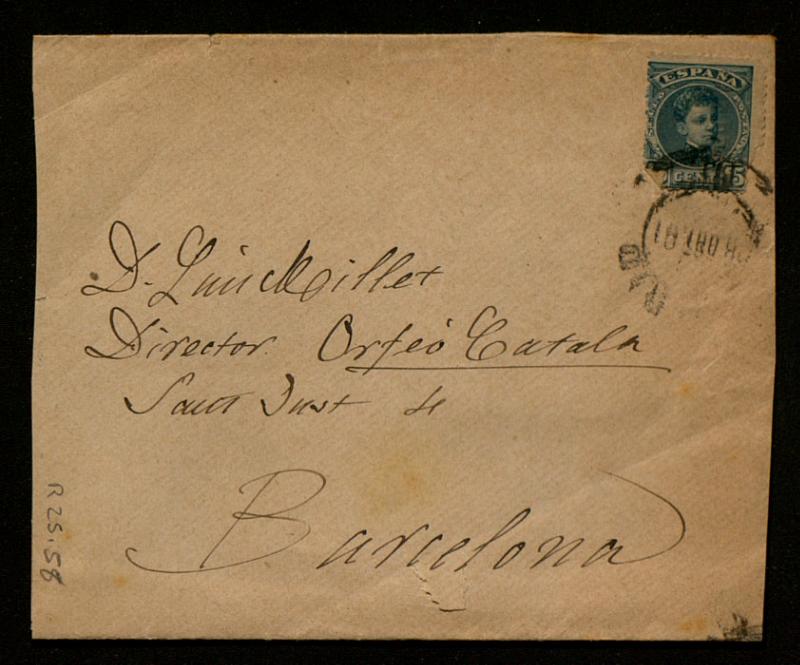 ESPAÑA
D. Lluis Millet
Director Orfeó Català
Sant Just 4
Barcelona
R 25.58